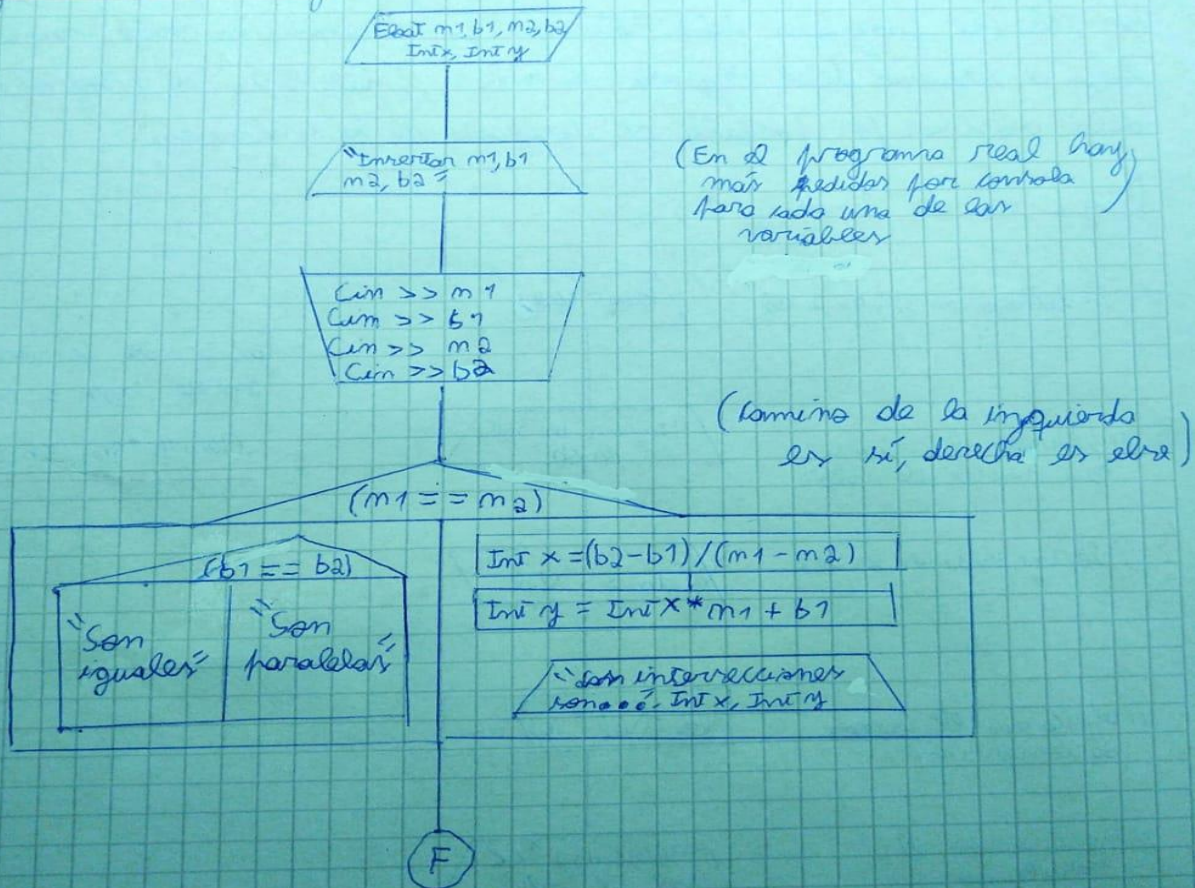 Float m1, b1, m2, b2
Intx, Inty
"Insertar m1, b1
m2, b2"
(En el programa real hay
más pedidos por consola
para cada una de las
variables)
Cin >> m1
Cin >> b1
Cin >> m2
Cin >> b2
(camino de la izquierda
es sí, derecha es else)
(m1 == m2)
(b1 == b2)
"Son
iguales"
"Son
paralelas"
Intx = (b2-b1)/(m1-m2)
Inty = Intx*m1 + b1
"Las intersecciones
son...", Intx, Inty
F